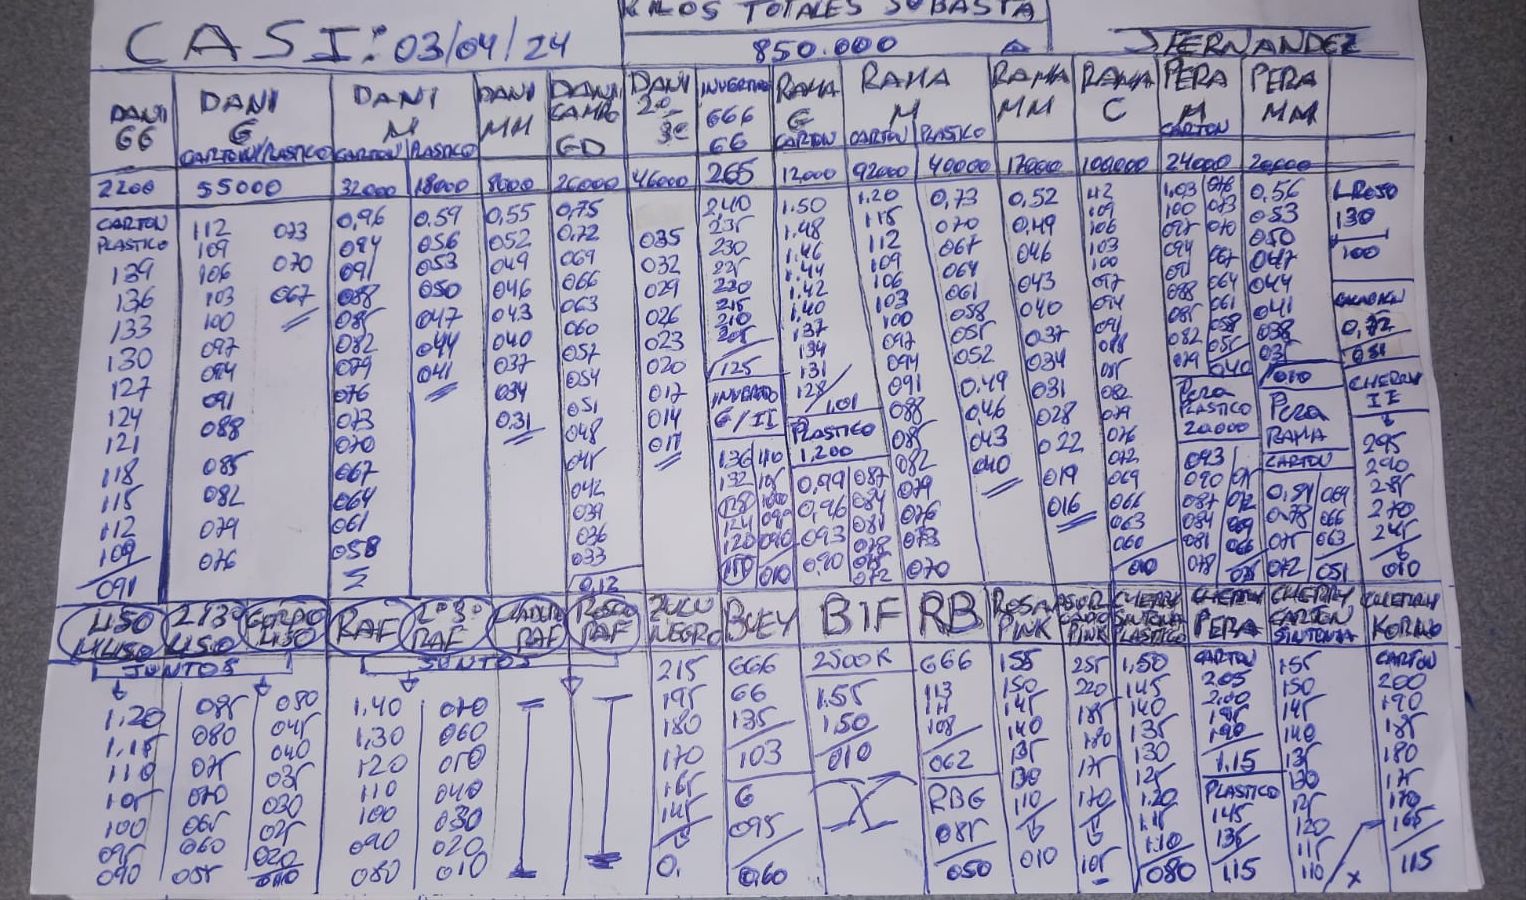 KILOS TOTALES SUBASTA
CASI: 03/04/24
850.000
J FERNANDEZ
DANI GG
DANI G CARTON PLASTICO
DANI M CARTON PLASTICO
DANI MM
DANI CAMP GD
DANI 2ª 3ª
666 66
RAMA G CARTON
RAMA M CARTON PLASTICO
RAMA MM
RAMA C
PERA M CARTON
PERA MM
2200 55000 32000 18000 8000 26000 46000 265 12000 92000 40000 17000 100000 24000 20000
CARTON
PLASTICO
139
136
133
130
127
124
121
118
115
112
109
091
112
109
106
103
100
097
094
091
088
085
082
079
076
073
070
067
0,96
094
091
088
085
082
079
076
073
070
067
064
061
058
0,59
056
053
050
047
044
041
0,55
052
049
046
043
040
037
034
031
0,75
0,72
069
066
063
060
057
054
051
048
045
042
039
036
033
0,12
035
032
029
026
023
020
017
014
011
2,40
235
230
225
220
215
210
205
125
G/II
136 110
132 105
128 100
124 095
120 090
010
1.50
1.48
1.46
1.44
1.42
1.40
137
134
131
128
1,01
PLASTICO
1.200
0,99 087
0,96 084
093 081
0,90 078
075
072
1.20
115
112
109
106
103
100
097
094
091
088
085
082
079
076
073
070
0,73
070
067
064
061
058
055
052
0,49
0,46
043
040
0,52
0,49
046
043
040
037
034
031
028
022
019
016
112
109
106
103
100
097
094
091
088
085
082
079
076
072
069
066
063
060
010
1,03 076
100 073
097 070
094 067
091 064
088 061
085 058
082 055
079 040
PERA
PLASTICO
20.000
093
090 075
087 072
084 069
081 066
078
0,56
053
050
047
044
041
038
035
010
PERA
RAMA
CARTON
069
066
075 063
072 051
130
100
0,72
031
CHERRY
II
295
290
285
270
245
010
RAF
2ª 3ª RAF
RAF
RAF
ZULU NEGRO
BUEY
BIF
RB
ROSA PINK
PINK
CHERRY SINTONIA PLASTICO
CHERRY PERA
CHERRY CARTON SINTONIA
CHERRY
JUNTOS
JUNTOS
1.20
1.15
110
105
100
095
090
085
080
075
070
065
060
055
050
045
040
035
030
025
020
010
1.40
1,30
120
110
100
090
080
070
060
050
040
030
020
010
215
195
180
170
165
145
0.
666
66
135
103
G
095
0,60
2500K
1.55
1.50
010
666
113
111
108
062
RBG
085
050
155
150
145
140
135
130
110
010
255
220
185
180
175
170
105
1,50
145
140
135
130
125
1.20
1.15
1.10
080
CARTON
2.05
2.00
195
190
1.15
PLASTICO
145
135
1,15
155
150
145
140
135
130
125
120
115
110
CARTON
200
190
185
180
175
170
165
115